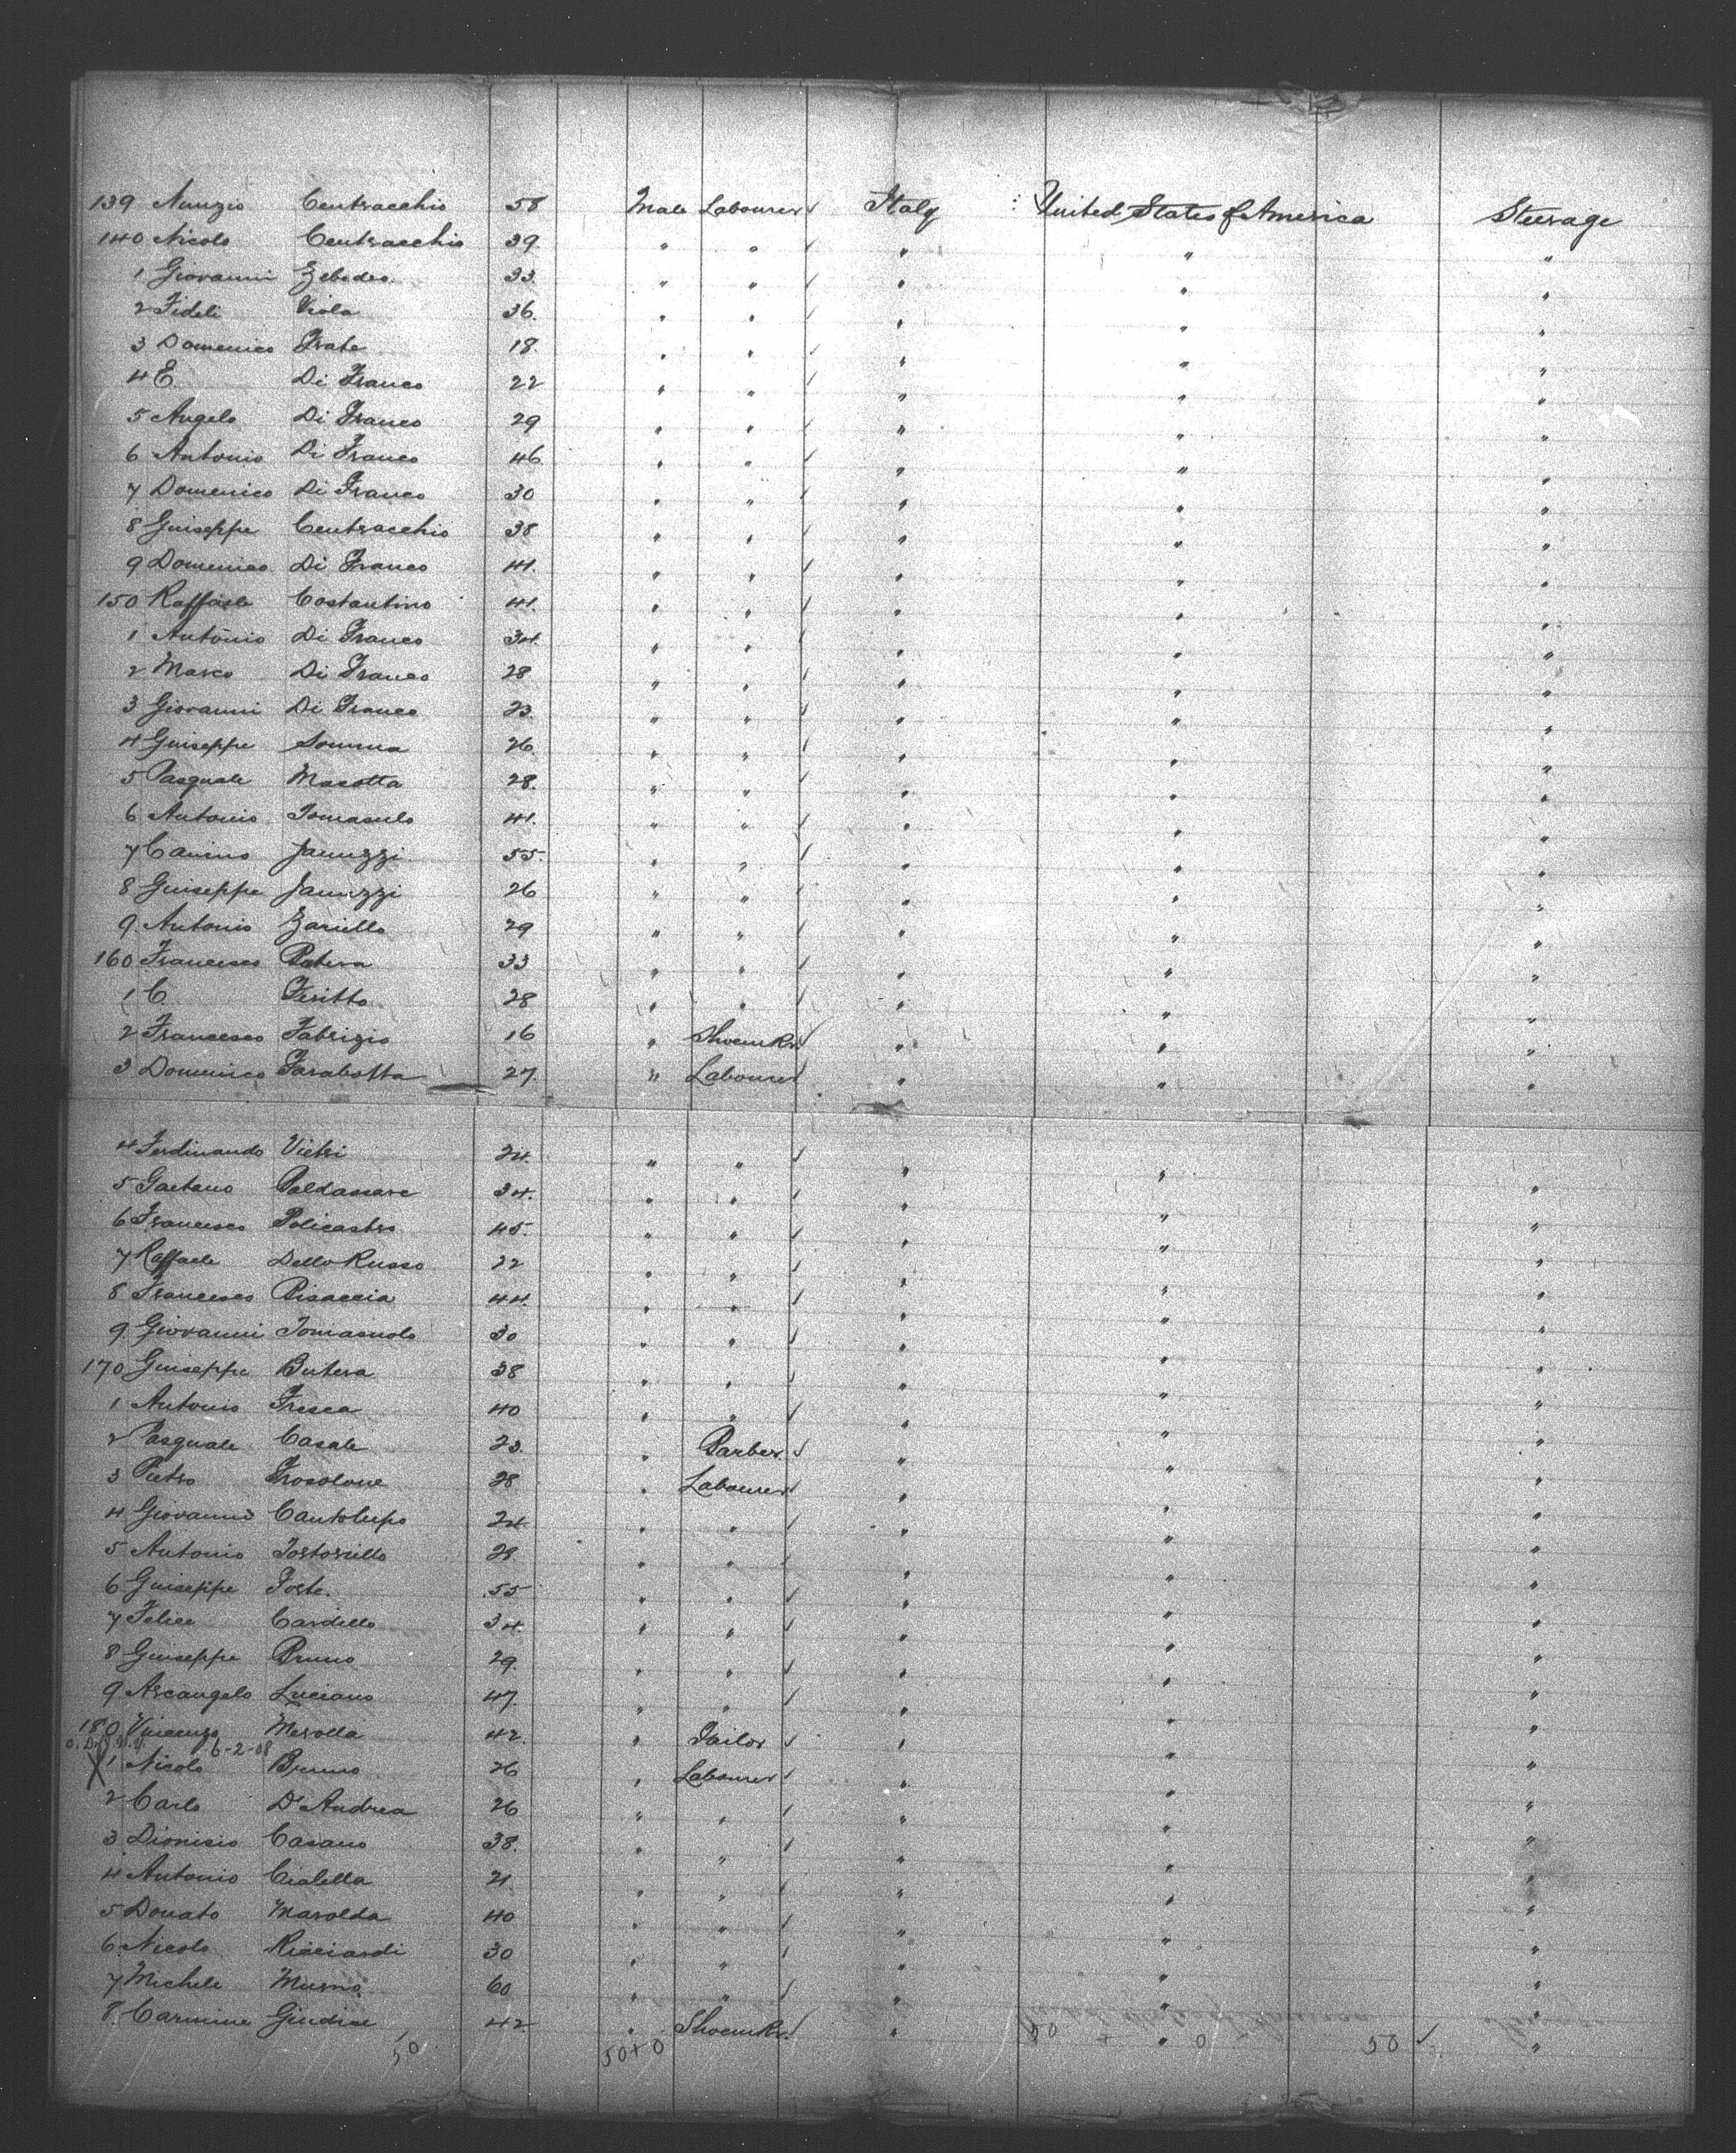 139 Nunzio Centracchio 58 Male Labourer ✓ Italy United States of America Steerage
140 Nicolo Centracchio 39. " " ✓ " " "
1 Giovanni Zebedeo 33. " " ✓ " " "
2 Fideli Viola 36. " " ✓ " " "
3 Domenico Frate 18. " " ✓ " " "
4 E. Di Franco 22 " " ✓ " " "
5 Angelo Di Franco 29 " " ✓ " " "
6 Antonio Di Franco 46 " " ✓ " " "
7 Domenico Di Franco 30 " " ✓ " " "
8 Guiseppe Centracchio 38 " " ✓ " " "
9 Domenico Di Franco 41. " " ✓ " " "
150 Raffaele Costantino 41. " " ✓ " " "
1 Antonio Di Franco 34. " " ✓ " " "
2 Marco Di Franco 28 " " ✓ " " "
3 Giovanni Di Franco 23. " " ✓ " " "
4 Guiseppe Somma 26. " " ✓ " " "
5 Pasquale Macotta 28. " " ✓ " " "
6 Antonio Tomasulo 41. " " ✓ " " "
7 Canino Januzzi 55. " " ✓ " " "
8 Guiseppe Januzzi 26 " " ✓ " " "
9 Antonio Zariello 29 " " ✓ " " "
160 Francesco Patera 33 " " ✓ " " "
1 C. Feritto 28 " " ✓ " " "
2 Francesco Fabrizio 16 " Shoemkr. ✓ " " "
3 Domenico Farabotta 27. " Labourer ✓ " " "
4 Ferdinando Vietri 24. " " ✓ " " "
5 Gaetano Baldassare 34. " " ✓ " " "
6 Francesco Policastro 45. " " ✓ " " "
7 Raffaele Dello Russo 22 " " ✓ " " "
8 Francesco Bisaccia 44. " " ✓ " " "
9 Giovanni Tomasuolo 30 " " ✓ " " "
170 Guiseppe Butera 38 " " ✓ " " "
1 Antonio Fresca 40 " " ✓ " " "
2 Pasquale Casale 23. " Barber. ✓ " " "
3 Pietro Frosolone 28 " Labourer ✓ " " "
4 Giovanni Cantolupo 24 " " ✓ " " "
5 Antonio Tortoriello 28. " " ✓ " " "
6 Guiseppe Forte. 55 " " ✓ " " "
7 Felice Cardillo 34. " " ✓ " " "
8 Guiseppe Bruno 29. " " ✓ " " "
9 Arcangelo Luciano 47. " " ✓ " " "
180 Vincenzo Merolla 42. " Tailor ✓ " " "
6-2-08
X 1 Nicolo Bruno 26 " Labourer ✓ " " "
2 Carlo D'Andrea 26 " " ✓ " " "
3 Dionisio Casano 38. " " ✓ " " "
4 Antonio Cialella 21. " " ✓ " " "
5 Donato Marolda 40 " " ✓ " " "
6 Nicolo Ricciardi 30 " " ✓ " " "
7 Michele Murno 60 " " ✓ " " "
8. Carmine Giudice 42 " Shoemkr. ✓ " " "
50 50+0 50 + 0 50 ✓